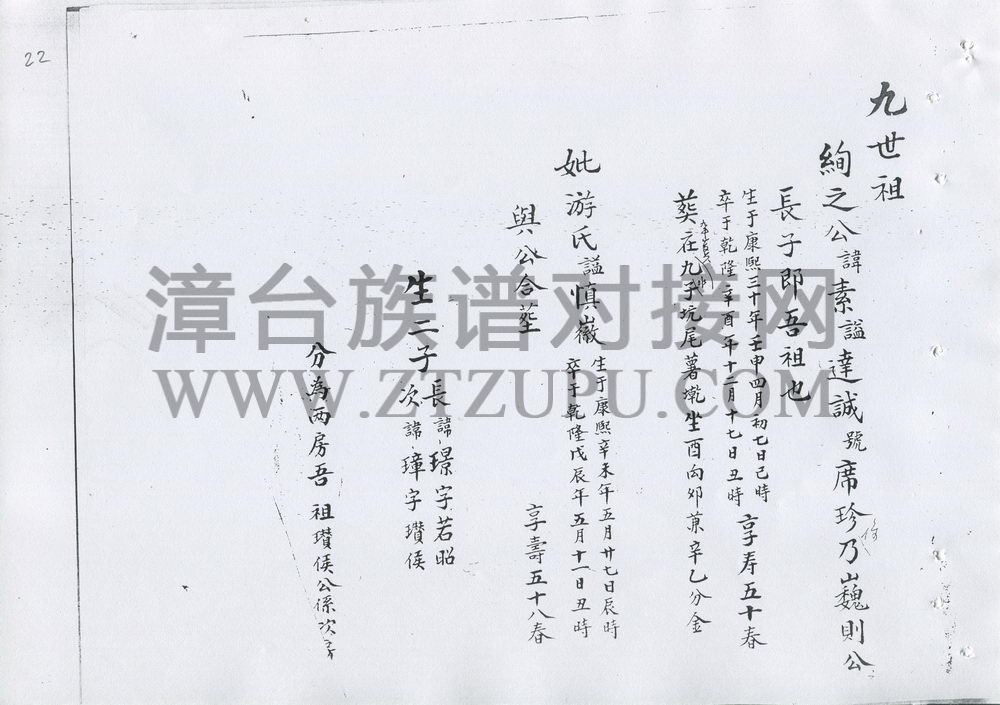 22
九世祖
絢之公諱素謚達誠號席珍乃巍則公
長子即吾祖也
生于康熙三十年壬申四月初七日巳時
卒于乾隆辛酉年十二月十七日丑時
享寿五十春
葬在九子坑尾薯墘坐酉向卯兼辛乙分金
妣游氏謚慎徽
生于康熙辛未年五月廿七日辰時
卒于乾隆戊辰年五月十一日丑時
享壽五十八春
與公合塟
生二子
長諱璟字若昭
次諱璋字瓚侯
分為两房吾祖瓚侯公係次房
漳台族谱对接网
WWW.ZTZUPU.COM